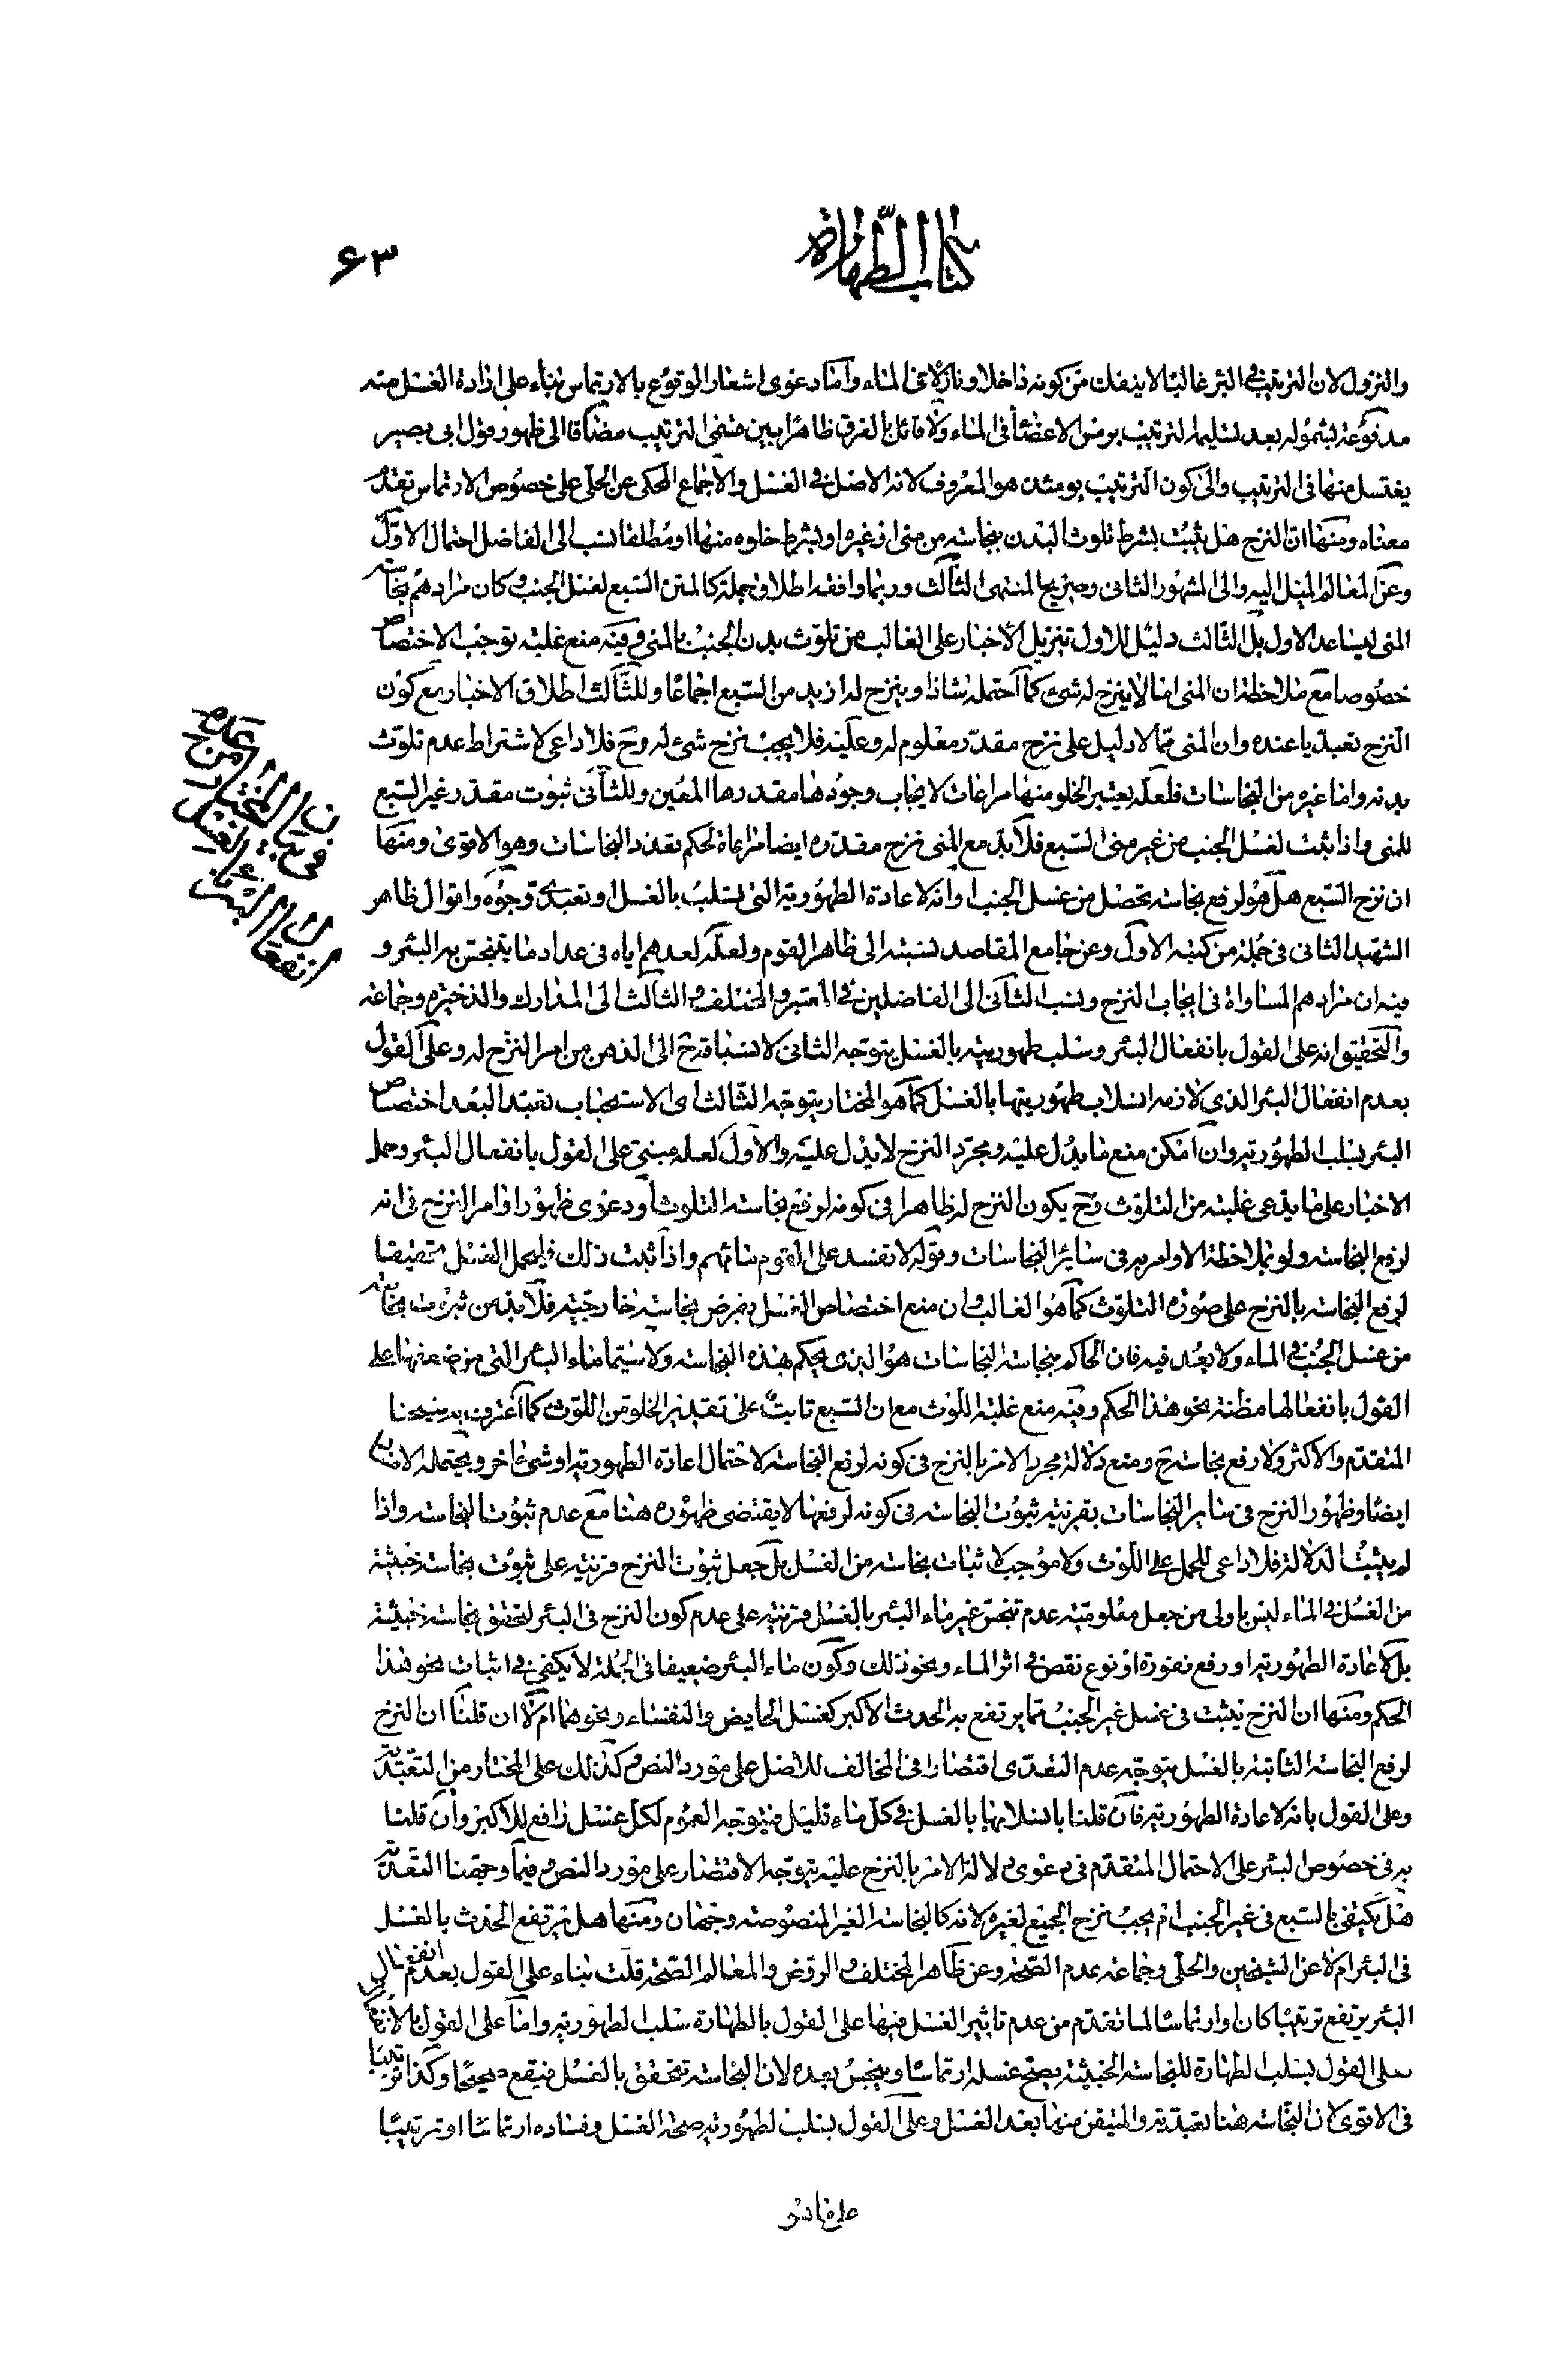 كتاب الطهارة
۶۳
والنزول لان الترتيب في البئر غالبا لا ينفك من كونه داخلا ونازلا في الماء واما دعوى اشعار الوقوع بالارتماس بناء على ارادة الغسل منه
مدفوعة بشموله بعد تسليمه لترتيب يرمس الاعضاء في الماء ولا قائل بالفرق ظاهرا بين قسمي الترتيب مضافا الى ظهور قول ابي بصير
يغتسل منها في الترتيب والى كون الترتيب يومئذ هو المعروف لانه الاصل في الغسل والاجماع المحكي عن الحلي على خصوص الارتماس تقدم
معناه ومنها ان النزح هل يثبت بشرط تلوث البدن بنجاسة من مني او غيره او بشرط خلوه منها او مطلقا نسب الى الفاضل احتمال الاول
وعن المعالم الميل اليه والى المشهور الثاني وصريح المنتهى الثالث وربما وافقه اطلاق جملة كالمتن السبع لغسل الجنب وكان مرادهم نجاسة
المني ليساعد الاول بل الثالث دليل للاول تنزيل الاخبار على الغالب من تلوث بدن الجنب بالمني وفيه منع غلبة توجب الاختصاص
خصوصا مع ملاحظة ان المني اما لا ينزح له شئ كما احتمله شاذا وينزح له ازيد من السبع اجماعا وللثالث اطلاق الاخبار مع كون
النزح تعبديا عنده وان المني مما لا دليل على نزح مقدر معلوم له وعليه فلا يجب نزح شئ له وح فلا داعي لاشتراط عدم تلوث
بدنه واما غيره من النجاسات فلعله يعتبر الخلو منها مراعات لايجاب وجودها مقدرها المعين وللثاني ثبوت مقدر غير السبع
للمني واذا ثبت لغسل الجنب من غير مني السبع فلابد مع المني نزح مقدره ايضا مراعاة لحكم تعدد النجاسات وهو الاقوى ومنها
ان نزح السبع هل هو لرفع نجاسة تحصل من غسل الجنب او انه لاعادة الطهورية التي تسلب بالغسل او تعبد وجوه واقوال ظاهر
الشهيد الثاني في جملة من كتبه الاول وعن جامع المقاصد نسبته الى ظاهر القوم ولعله لعدهم اياه في عداد ما ينجس به البئر و
فيه ان مرادهم المساواة في ايجاب النزح ونسب الثاني الى الفاضلين في المعتبر والمختلف والثالث الى المدارك والذخيرة وجماعة
والتحقيق انه على القول بانفعال البئر وسلب طهوريته بالغسل يتوجه الثاني لانسباقه ح الى الذهن من امر النزح له وعلى القول
بعدم انفعال البئر الذي لازمه انسلاب طهوريتها بالغسل كما هو المختار يتوجه الثالث اى الاستحباب تعبدا لبعد اختصاص
البئر بسلب الطهورية وان امكن منع ما يدل عليه ومجرد النزح لا يدل عليه والاول لعله مبني على القول بانفعال البئر وحمل
الاخبار على ما يدعى غلبته من التلوث وح يكون النزح له ظاهرا في كونه لرفع نجاسة التلوث او دعوى ظهور اوامر النزح في انه
لرفع النجاسة ولو بملاحظة الاوامر به في سائر النجاسات وقوله لا تفسد على القوم مائهم واذا ثبت ذلك فليحمل الغسل مقتضيا
لرفع النجاسة بالنزح على صورة التلوث كما هو الغالب وان منع اختصاص الغسل بفرض نجاسة خارجية فلابد من ثبوت نجاسة
من غسل الجنب في الماء ولا بعد فيه فان الحاكم بنجاسة النجاسات هو الذي يحكم بهذه النجاسة ولا سيما ماء البئر التي من
القول بانفعالها مظنة نحو هذا الحكم وفيه منع غلبة اللوث مع ان السبع ثابت على تقدير الخلو من اللوث كما اعترف به
المتقدم والاكثر ولا رفع نجاسة ح ومنع دلالة مجرد الامر بالنزح في كونه لرفع النجاسة لاحتمال اعادة الطهورية او شئ اخر ويحتمله
ايضا وظهور النزح في ساير النجاسات بقرينة ثبوت النجاسة في كونه لرفعها لا يقتضي ظهوره هنا مع عدم ثبوت النجاسة واذا
لم يثبت الدلالة فلا داعي للحمل على اللوث ولا موجب لاثبات نجاسة من الغسل بل جعل ثبوت النزح قرينة على ثبوت نجاسة خبثية
من الغسل في الماء ليس باولى من جعل معلومية عدم تنجس غير ماء البئر بالغسل قرينة على عدم كون النزح في البئر لتحقق نجاسة خبثية
بل لاعادة الطهورية او رفع نفرة او نوع نقص في اثر الماء ونحو ذلك وكون ماء البئر ضعيفا في الجملة لا يكفي في اثبات نحو هذا
الحكم ومنها ان النزح يثبت في غسل غير الجنب مما يرتفع به الحدث الاكبر كغسل الحايض والنفساء ونحوهما ام لا ان قلنا ان النزح
لرفع النجاسة الثابتة بالغسل يتوجه عدم التعدى اقتصارا في المخالف للاصل على مورد النص وكذلك على المختار من التعبدية
وعلى القول بانه لاعادة الطهورية فان قلنا بانسلابها بالغسل في كل ماء قليل فيتوجه العموم لكل غسل رافع للاكبر وان قلنا
به في خصوص البئر على الاحتمال المتقدم في دعوى دلالة الامر بالنزح عليه يتوجه الاقتصار على مورد النص وفيما وحققنا التعدية
هل يكتفى بالسبع في غير الجنب ام يجب نزح الجميع لغيره لانه كالنجاسة الغير المنصوصة وجهان ومنها هل يرتفع الحدث بالغسل
في البئر ام لا عن الشيخين والحلي وجماعة عدم الصحة وعن ظاهر المختلف والروض والمعالم الصحة قلت بناء على القول بعدم انفعال
البئر يرتفع ترتيبا كان او ارتماسا لما تقدم من عدم تاثير الغسل فيها على القول بالطهارة سلب الطهورية واما على القول بالانفعال
على القول بسلب الطهارة للنجاسة الخبثية يصح غسله ارتماسا وينجس بعده لان النجاسة تتحقق بالغسل فيقع صحيحا وكذا ترتيبا
في الاقوى لان النجاسة هنا تعبدية والمتيقن منها بعد الغسل وعلى القول بسلب الطهورية صحة الغسل وفساده ارتماسا او ترتيبا
بيان المختار من عدم